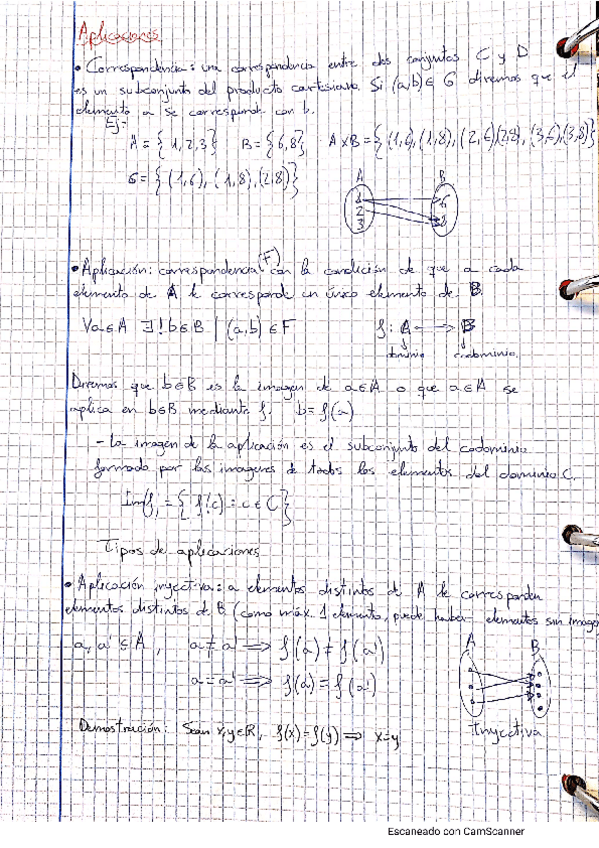 Aplicaciones
• Correspondencia: una correspondencia entre dos conjuntos C y D
es un subconjunto del producto cartesiano. Si (a,b)∈ G diremos que el
elemento a se corresponde con b.
Ej-
A={1,2,3} B={6,8} AxB={(1,6),(1,8),(2,6)(2,8),(3,6),(3,8)}
G={(1,6),(1,8),(2,8)}
A B
1
2
3
6
8
• Aplicación: correspondencia (F) con la condición de que a cada
elemento de A le corresponde un único elemento de B.
∀a∈A ∃!b∈B | (a,b)∈F f: A → B
dominio codominio.
Diremos que b∈B es la imagen de a∈A o que a∈A se
aplica en b∈B mediante f. b=f(a)
- La imagen de la aplicación es el subconjunto del codominio
formado por las imagenes de todos los elementos del dominio C.
Imf = {f(c) : c∈C}
Tipos de aplicaciones
• Aplicación inyectiva: a elementos distintos de A le corresponden
elementos distintos de B (como máx. 1 elemento, puede haber elementos sin imagen
a, a' ∈ A, a≠a' ⟹ f(a)≠f(a')
a=a' ⟹ f(a)=f(a')
A B
Inyectiva
Demostración: Sean x,y∈R, f(x)=f(y) ⟹ x=y
Escaneado con CamScanner